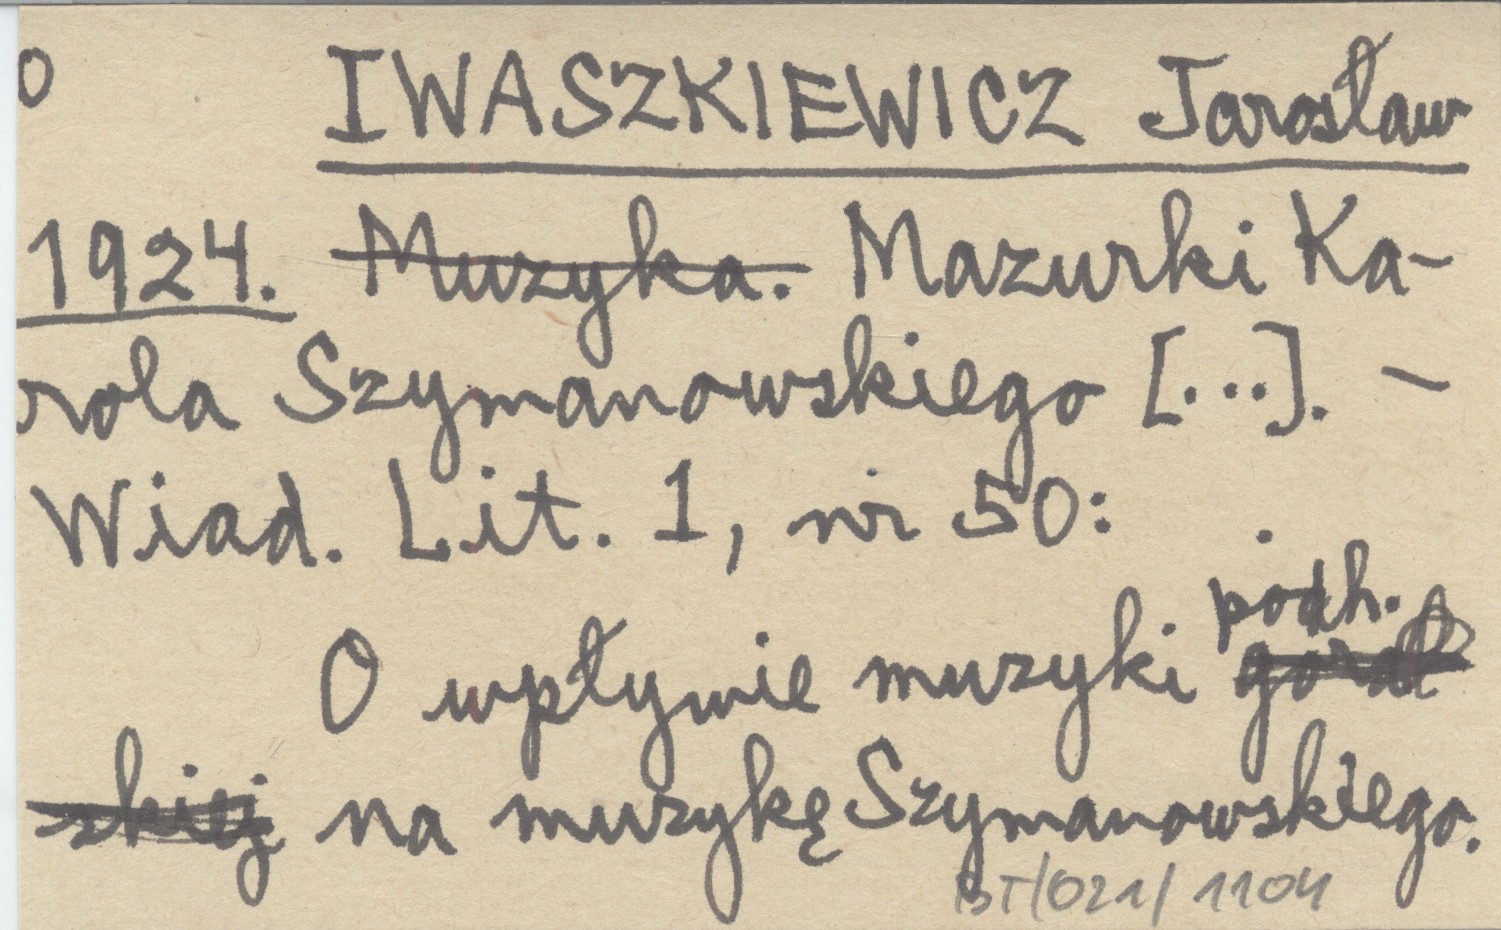 0 IWASZKIEWICZ Jarosław
1924. Muzyka. Mazurki Ka-
rola Szymanowskiego [...]. -
Wiad. Lit. 1, nr 50:
podh.
O wpływie muzyki goral
skiej na muzykę Szymanowskiego.
BT/021/1104